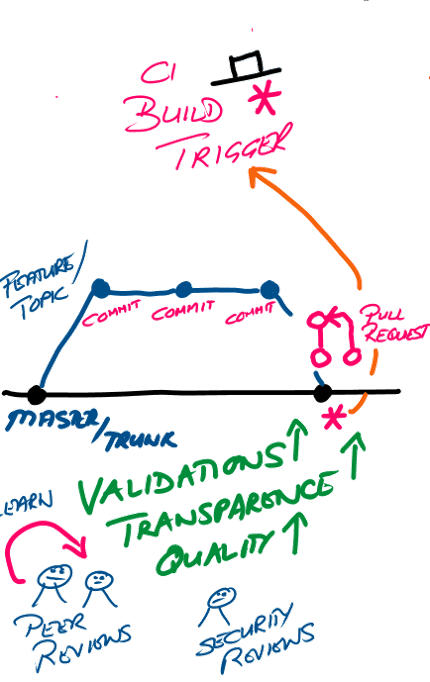 CI
BUILD
TRIGGER
FEATURE/
TOPIC
COMMIT COMMIT COMMIT
PULL
REQUEST
MASTER/
TRUNK
VALIDATIONS
TRANSPARENCE
QUALITY
LEARN
PEER
REVIEWS
SECURITY
REVIEWS